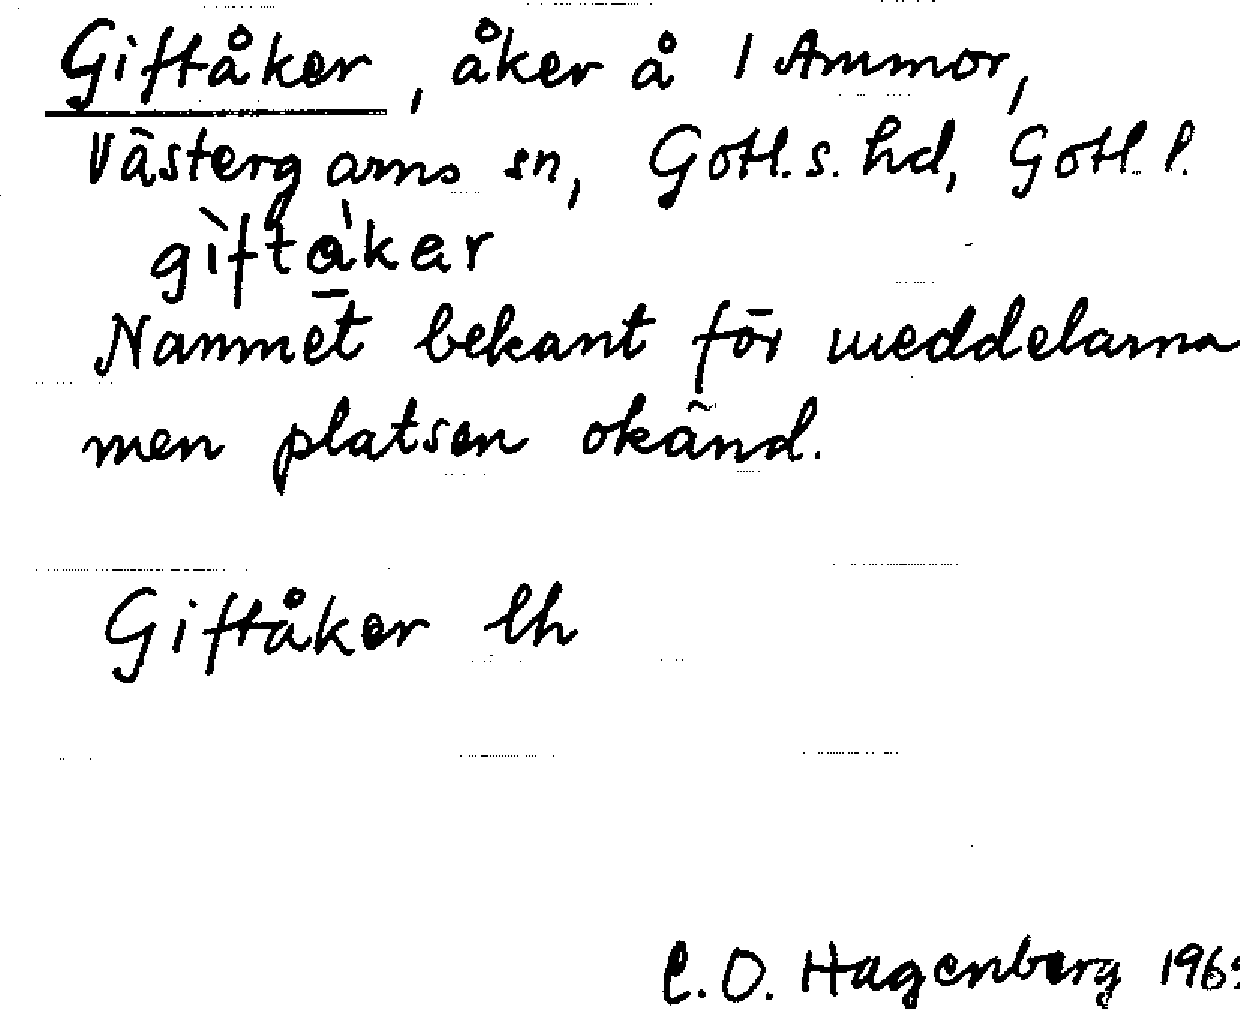 Giftåker, åker å 1 Ammor,
Västergarns sn, Gotl. s. hd, Gotl. l.
gìftàkar
Namnet bekant för meddelarna
men platsen okänd.
Giftåker lh
C. O. Hagenberg